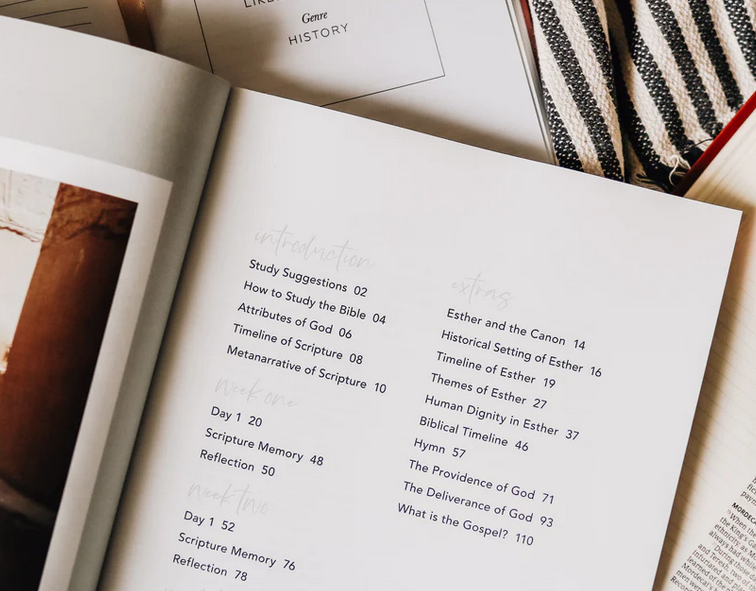 Genre
HISTORY
introduction
Study Suggestions 02
How to Study the Bible 04
Attributes of God 06
Timeline of Scripture 08
Metanarrative of Scripture 10
week one
Day 1 20
Scripture Memory 48
Reflection 50
week two
Day 1 52
Scripture Memory 76
Reflection 78
extras
Esther and the Canon 14
Historical Setting of Esther 16
Timeline of Esther 19
Themes of Esther 27
Human Dignity in Esther 37
Biblical Timeline 46
Hymn 57
The Providence of God 71
The Deliverance of God 93
What is the Gospel? 110